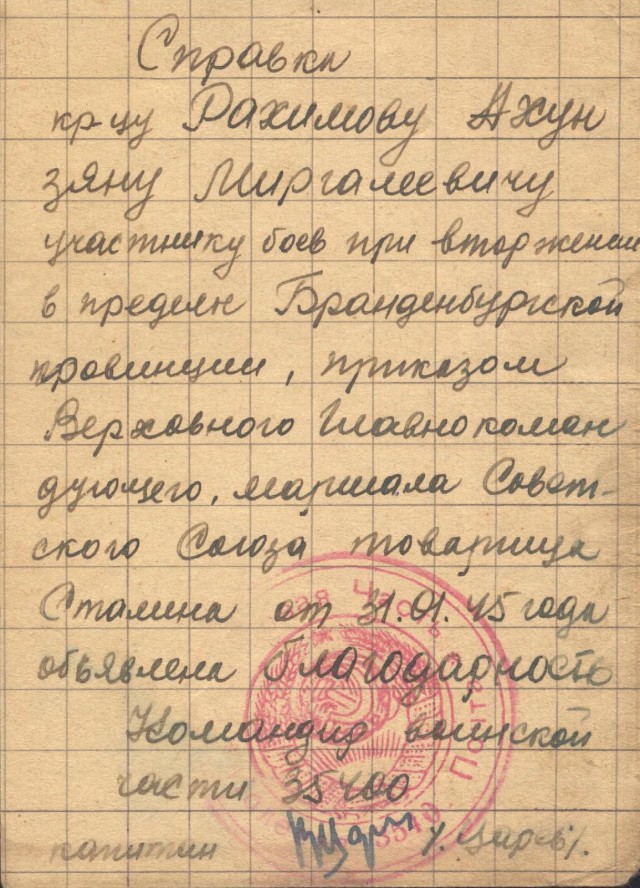 Справка
кр-цу Рахимову Ахун
зяну Миргалеевичу
участнику боев при вторжении
в пределы Бранденбургской
провинции, приказом
Верховного Главнокоман
дующего, маршала Совет-
ского Союза товарища
Сталина от 31.01.45 года
объявлена Благодарность
Командир воинской
части 35400
капитан